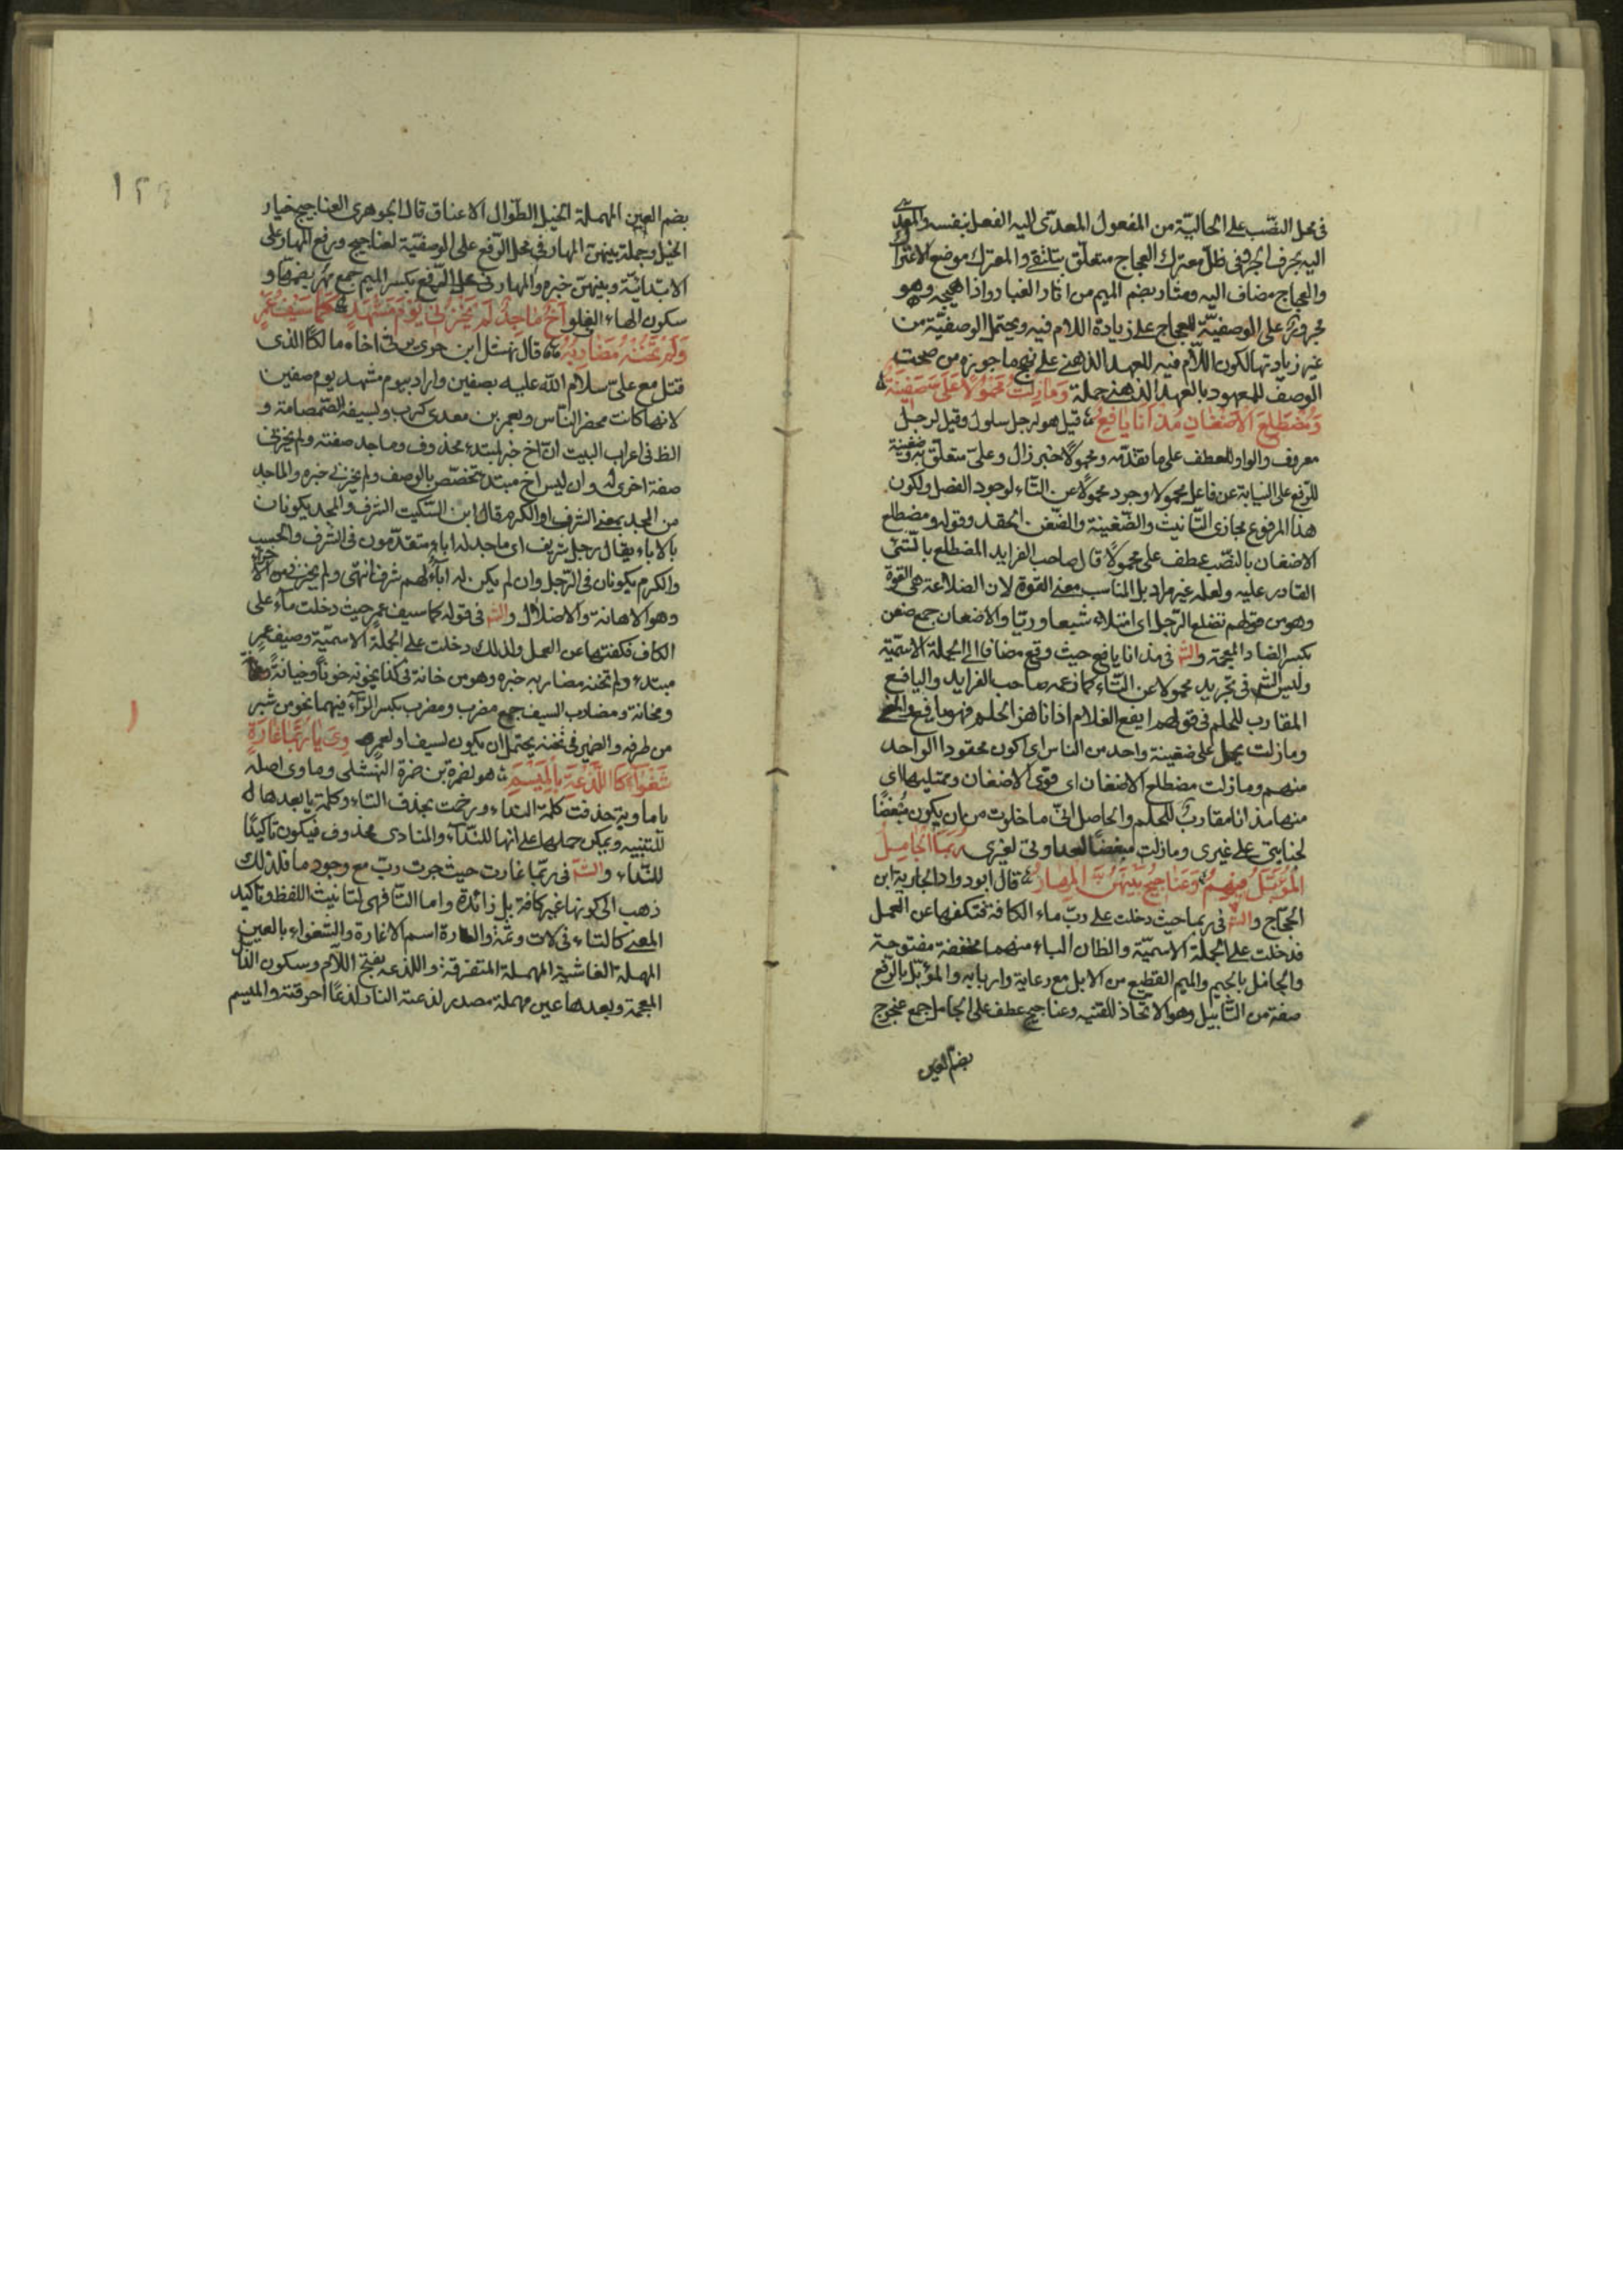 في محل النصب على الحالية من المفعول المعدى اليه الفعل بنفسه والمعدى
اليه بحرف الجر وفي ظل معترك العجاج متعلق بتلتقي والمعترك موضع الاعتراك
والعجاج مضاف اليه ومثار بضم الميم من اثار الغبار واذا هيجه وهو
مجرور على الوصفية للعجاج على زيادة اللام فيه ويحتمل الوصفية من
غير زيادتها لكون اللام فيه للعهد الذهني على نهج ما جوزه من صحة
الوصف للمعهود بالعهد الذهني جملة وَمَازِلْتُ مَحْمُولًا عَلَىَّ ضَغِينَةٌ
وَمُضْطَلِعَ الْاَضْغَانِ مُذْ اَنَا يَافِعُ قيل هو لرجل سلول وقيل لرجل
معروف والواو للعطف على ما تقدمه ومحمولا خبر زال وعلي متعلق به وضغينة
للرفع على النيابة عن فاعل محمولا وجرد محمولا عن التاء لوجود الفصل ولكون
هذا المرفوع مجازى التانيث والضغينة والضغن الحقد وقوله ومضطلع
الاضغان بالنصب عطف على محمولا قال صاحب الفرايد المضطلع بالشئ
القادر عليه ولعله غير مراد بل المناسب معنى القوة لان الضلاعة هى القوة
وهو من قولهم تضلع الرجل اى امتلاء شبعا وريا والاضغان جمع ضغن
بكسر الضاد المعجمة والش في مذ انا يافع حيث وقع مضافا الى الجملة الاسمية
وليس الش في تجريد محمولا عن التاء كما زعمه صاحب الفرايد واليافع
المقارب للحلم في قولهم ايفع الغلام اذا ناهز الحلم فهو يافع والمعنى
ومازلت يحمل على ضغينة واحد من الناس اى اكون محقودا الواحد
منهم ومازلت مضطلع الاضغان اى قوى الاضغان وممتليها اى
منها مذ انا مقارب للحلم والحاصل انى ما خلوت من ان يكون مبغضا
لجنايتى على غيرى ومازلت مبغضا لعداوتى لغيرى رُبَّمَا الْجَامِلُ
الْمُؤَبَّلُ فِيهِمْ وَعَنَاجِيجُ بَيْنَهُنَّ الْمِهَارُ قال ابو دواد الجارية ابن
الحجاج والش في ربما حيث دخلت على رب ماء الكافة فتكفها عن العمل
فدخلت على الجملة الاسمية والظان الباء منهما مخففة مفتوحة
والجامل بالجيم والميم القطيع من الابل مع رعاية واربابه والمؤبل بالرفع
صفة من التابيل وهو الاتخاذ للقنيه وعناجيج عطف على الجامل جمع عنجوج
بضم العين
بضم العين المهملة الخيل الطوال الاعناق قال الجوهرى العناجيج خيار
الخيل وجملة بينهن المهار في محل الرفع على الوصفية لعناجيج ورفع المهار على
الابتدائية وبينهن خبره والمهار في محل الرفع بكسر الميم جمع مهر بضمها و
سكون الهاء الفلو اَخٌ مَاجِدٌ لَمْ يُخْزِنِي يَوْمَ مَشْهَدٍ كَمَا سَيْفُ عَمْرٍ
وَلَمْ تَخُنْهُ مَضَارِبُهْ قال نهشل ابن حرى يرثى اخاه مالكا الذى
قتل مع على سلام الله عليه بصفين واراد بيوم مشهد يوم صفين
لانها كانت محضر الناس وبعمر بن معدى كرب وبسيفه الصمصامة و
الظ في اعراب البيت ان اخ خبر لمبتدء محذوف وماجد صفته ولم يخزنى
صفة اخرى له وان ليس اخ مبتدء تخصص بالوصف ولم يخزنى خبره والماجد
من المجد بمعنى الشرف او الكرم قال ابن السكيت الشرف والمجد يكونان
بالاباء يقال رجل شريف اى ماجد له اباء متقدمون في الشرف والحسب
والكرم يكونان في الرجل وان لم يكن له اباء لهم شرف انتهى ولم يخزنى من الاخزاء
وهو الاهانة والاضلال والش في قوله كما سيف عمر حيث دخلت ماء على
الكاف فكفتها عن العمل ولذلك دخلت على الجملة الاسمية وسيف عمر
مبتدء ولم تخنه مضاربه خبره وهو من خانة في كذا يخونه خونا وخيانة
ومخانة ومضارب السيف جمع مضرب ومضرب بكسر الراء فيهما نحو من شبر
من طرفه والضمير في تخنه يحتمل ان يكون لسيف او لعمر مَاوِىَّ يَا رُبَّتَمَا غَارَةٍ
شَعْوَآءَ كَاللَّذْعَةِ بِالْمِيْسَمِ هو لضمرة بن ضمرة النهشلى وماوى اصله
يا ماوية حذفت كلمة النداء ورخمت بحذف التاء وكلمة يا بعدها
للتنبيه ويمكن حملها على انها للنداء والمنادى محذوف فيكون تاكيدا
للنداء والش في ربتما غارت حيث جرت رب مع وجود ما فلذلك
ذهب الى كونها غير كافة بل زائدة واما التا فهى لتانيث اللفظ وتاكيد
المعنى كالتاء في لات وثمة والغارة اسم الاغارة والشعواء بالعين
المهملة الغاشية المهملة المتفرقة واللذعه بفتح اللام وسكون الذال
المعجمة وبعدها عين مهملة مصدر لذعته النار لذعا احرقته والميسم